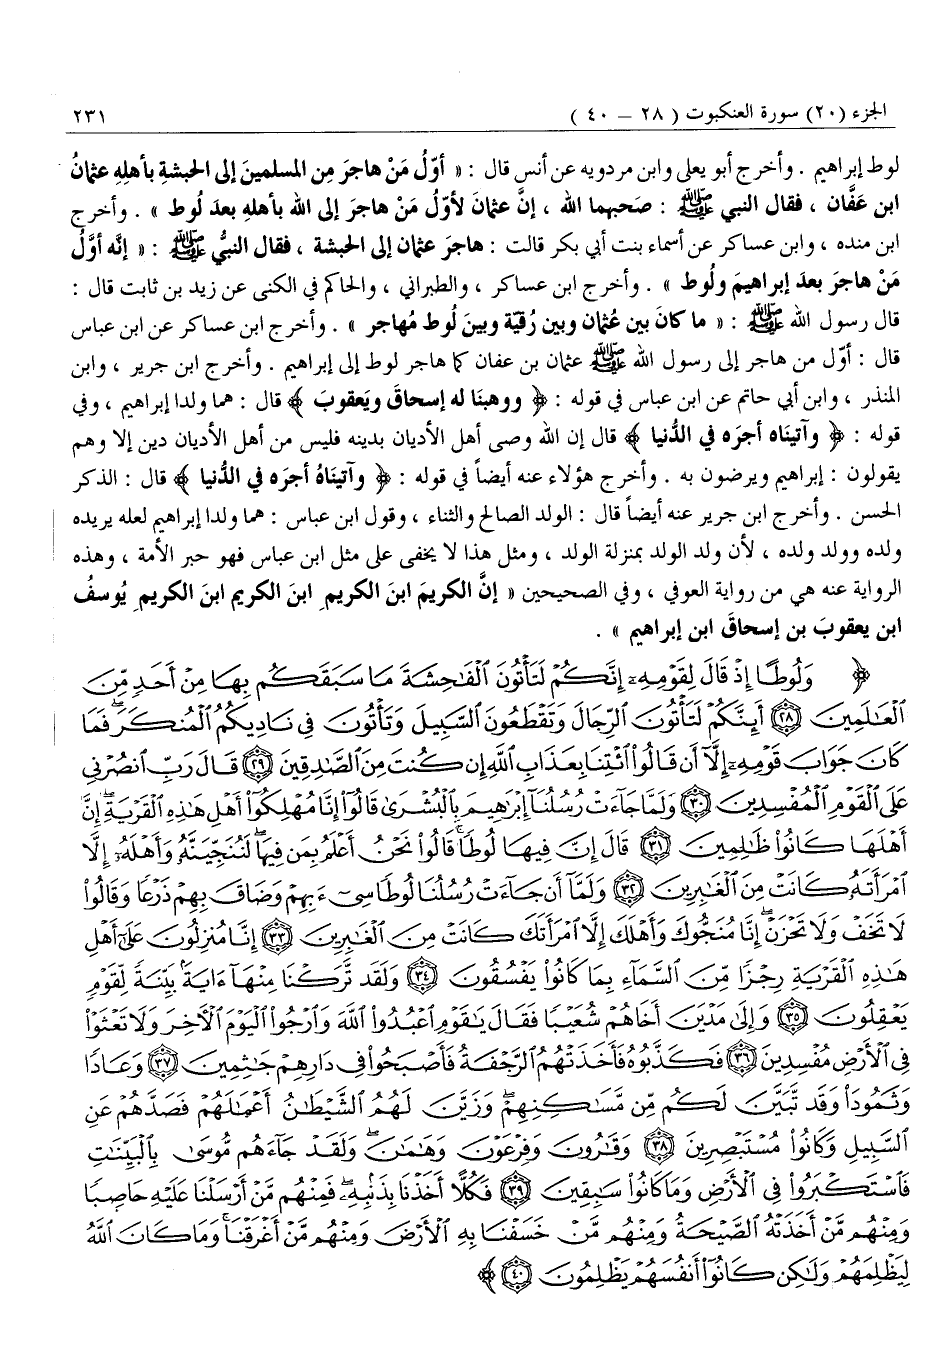 الجزء (٢٠) سورة العنكبوت ( ٢٨ – ٤٠ ) ٢٣١
لوط إبراهيم . وأخرج أبو يعلى وابن مردويه عن أنس قال : « أوّلُ مَنْ هاجرَ مِن المسلمينَ إلى الحبشةِ بأهلِهِ عثمانُ
ابن عَفَّان ، فقال النبي ﷺ : صَحبهما الله ، إنَّ عثمانَ لأوّلُ مَنْ هاجرَ إلى الله بأهلهِ بعدَ لُوط » . وأخرج
ابن منده ، وابن عساكر عن أسماء بنت أبي بكر قالت : هاجرَ عثمان إلى الحبشة ، فقال النبيُّ ﷺ : « إنَّه أوَّلُ
مَنْ هاجرَ بعدَ إبراهيمَ ولُوط » . وأخرج ابن عساكر ، والطبراني ، والحاكم في الكنى عن زيد بن ثابت قال :
قال رسول الله ﷺ : « ما كانَ بين عُثمان وبين رُقيّة وبينَ لُوط مُهاجر » . وأخرج ابن عساكر عن ابن عباس
قال : أوّل من هاجر إلى رسول الله ﷺ عثمان بن عفان كما هاجر لوط إلى إبراهيم . وأخرج ابن جرير ، وابن
المنذر ، وابن أبي حاتم عن ابن عباس في قوله : ﴿ ووهبنَا له إسحاقَ ويَعقوبَ ﴾ قال : هما ولدا إبراهيم ، وفي
قوله : ﴿ وآتيناه أجرَه في الدُّنيا ﴾ قال إن الله وصى أهل الأديان بدينه فليس من أهل الأديان دين إلا وهم
يقولون : إبراهيم ويرضون به . وأخرج هؤلاء عنه أيضاً في قوله : ﴿ وآتيناهُ أجرَه في الدُّنيا ﴾ قال : الذكر
الحسن . وأخرج ابن جرير عنه أيضاً قال : الولد الصالح والثناء ، وقول ابن عباس : هما ولدا إبراهيم لعله يريده
ولده وولد ولده ، لأن ولد الولد بمنزلة الولد ، ومثل هذا لا يخفى على مثل ابن عباس فهو حبر الأمة ، وهذه
الرواية عنه هي من رواية العوفي ، وفي الصحيحين « إنَّ الكريمَ ابنَ الكريمِ ابنَ الكريم ابنَ الكريمِ يُوسفُ
ابن يعقوبَ بن إسحاقَ ابن إبراهيم » .
﴿ وَلُوطًا إِذْ قَالَ لِقَوْمِهِۦٓ إِنَّكُمْ لَتَأْتُونَ ٱلْفَٰحِشَةَ مَا سَبَقَكُم بِهَا مِنْ أَحَدٍ مِّنَ
ٱلْعَٰلَمِينَ ۝٢٨ أَئِنَّكُمْ لَتَأْتُونَ ٱلرِّجَالَ وَتَقْطَعُونَ ٱلسَّبِيلَ وَتَأْتُونَ فِى نَادِيكُمُ ٱلْمُنكَرَ ۖ فَمَا
كَانَ جَوَابَ قَوْمِهِۦٓ إِلَّآ أَن قَالُوا۟ ٱئْتِنَا بِعَذَابِ ٱللَّهِ إِن كُنتَ مِنَ ٱلصَّٰدِقِينَ ۝٢٩ قَالَ رَبِّ ٱنصُرْنِى
عَلَى ٱلْقَوْمِ ٱلْمُفْسِدِينَ ۝٣٠ وَلَمَّا جَآءَتْ رُسُلُنَآ إِبْرَٰهِيمَ بِٱلْبُشْرَىٰ قَالُوٓا۟ إِنَّا مُهْلِكُوٓا۟ أَهْلِ هَٰذِهِ ٱلْقَرْيَةِ ۖ إِنَّ
أَهْلَهَا كَانُوا۟ ظَٰلِمِينَ ۝٣١ قَالَ إِنَّ فِيهَا لُوطًا ۚ قَالُوا۟ نَحْنُ أَعْلَمُ بِمَن فِيهَا ۖ لَنُنَجِّيَنَّهُۥ وَأَهْلَهُۥٓ إِلَّا
ٱمْرَأَتَهُۥ كَانَتْ مِنَ ٱلْغَٰبِرِينَ ۝٣٢ وَلَمَّآ أَن جَآءَتْ رُسُلُنَا لُوطًا سِىٓءَ بِهِمْ وَضَاقَ بِهِمْ ذَرْعًا وَقَالُوا۟
لَا تَخَفْ وَلَا تَحْزَنْ ۖ إِنَّا مُنَجُّوكَ وَأَهْلَكَ إِلَّا ٱمْرَأَتَكَ كَانَتْ مِنَ ٱلْغَٰبِرِينَ ۝٣٣ إِنَّا مُنزِلُونَ عَلَىٰٓ أَهْلِ
هَٰذِهِ ٱلْقَرْيَةِ رِجْزًا مِّنَ ٱلسَّمَآءِ بِمَا كَانُوا۟ يَفْسُقُونَ ۝٣٤ وَلَقَد تَّرَكْنَا مِنْهَآ ءَايَةًۢ بَيِّنَةً لِّقَوْمٍ
يَعْقِلُونَ ۝٣٥ وَإِلَىٰ مَدْيَنَ أَخَاهُمْ شُعَيْبًا فَقَالَ يَٰقَوْمِ ٱعْبُدُوا۟ ٱللَّهَ وَٱرْجُوا۟ ٱلْيَوْمَ ٱلْءَاخِرَ وَلَا تَعْثَوْا۟
فِى ٱلْأَرْضِ مُفْسِدِينَ ۝٣٦ فَكَذَّبُوهُ فَأَخَذَتْهُمُ ٱلرَّجْفَةُ فَأَصْبَحُوا۟ فِى دَارِهِمْ جَٰثِمِينَ ۝٣٧ وَعَادًا
وَثَمُودَا۟ وَقَد تَّبَيَّنَ لَكُم مِّن مَّسَٰكِنِهِمْ ۖ وَزَيَّنَ لَهُمُ ٱلشَّيْطَٰنُ أَعْمَٰلَهُمْ فَصَدَّهُمْ عَنِ
ٱلسَّبِيلِ وَكَانُوا۟ مُسْتَبْصِرِينَ ۝٣٨ وَقَٰرُونَ وَفِرْعَوْنَ وَهَٰمَٰنَ ۖ وَلَقَدْ جَآءَهُم مُّوسَىٰ بِٱلْبَيِّنَٰتِ
فَٱسْتَكْبَرُوا۟ فِى ٱلْأَرْضِ وَمَا كَانُوا۟ سَٰبِقِينَ ۝٣٩ فَكُلًّا أَخَذْنَا بِذَنۢبِهِۦ ۖ فَمِنْهُم مَّنْ أَرْسَلْنَا عَلَيْهِ حَاصِبًا
وَمِنْهُم مَّنْ أَخَذَتْهُ ٱلصَّيْحَةُ وَمِنْهُم مَّنْ خَسَفْنَا بِهِ ٱلْأَرْضَ وَمِنْهُم مَّنْ أَغْرَقْنَا ۚ وَمَا كَانَ ٱللَّهُ
لِيَظْلِمَهُمْ وَلَٰكِن كَانُوٓا۟ أَنفُسَهُمْ يَظْلِمُونَ ۝٤٠ ﴾